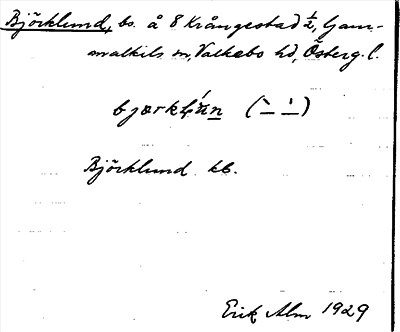 Björklund, bs. å 8 Krångestad ½, Gam-
malkils sn, Valkebo hd, Österg. l.
Björklund kb.
Erik Alm 1929